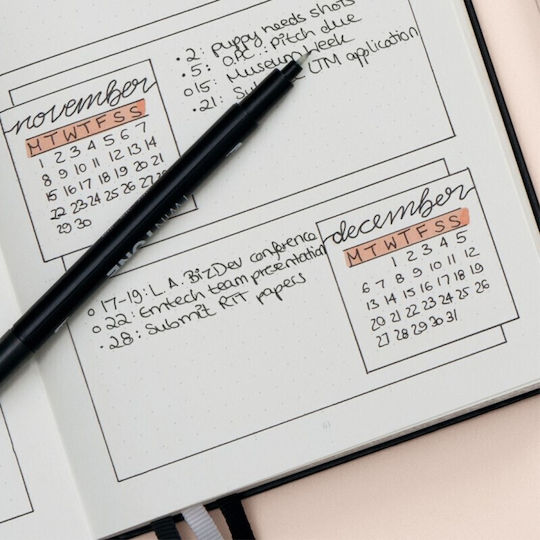 • 2: puppy needs shots
• 5: O.P.C.: Pitch due
o 15: Museum Week
• 21: UTM application
november
M T W T F S S
1 2 3 4 5 6 7
8 9 10 11 12 13 14
15 16 17 18 19 20 21
22 23 24 25 26 27
29 30
TWINTONE
o 17-19: L.A. BizDev conference
o 22: Emtech team presentation
• 28: Submit RIT papers
december
M T W T F S S
1 2 3 4 5
6 7 8 9 10 11 12
13 14 15 16 17 18 19
20 21 22 23 24 25 26
27 28 29 30 31